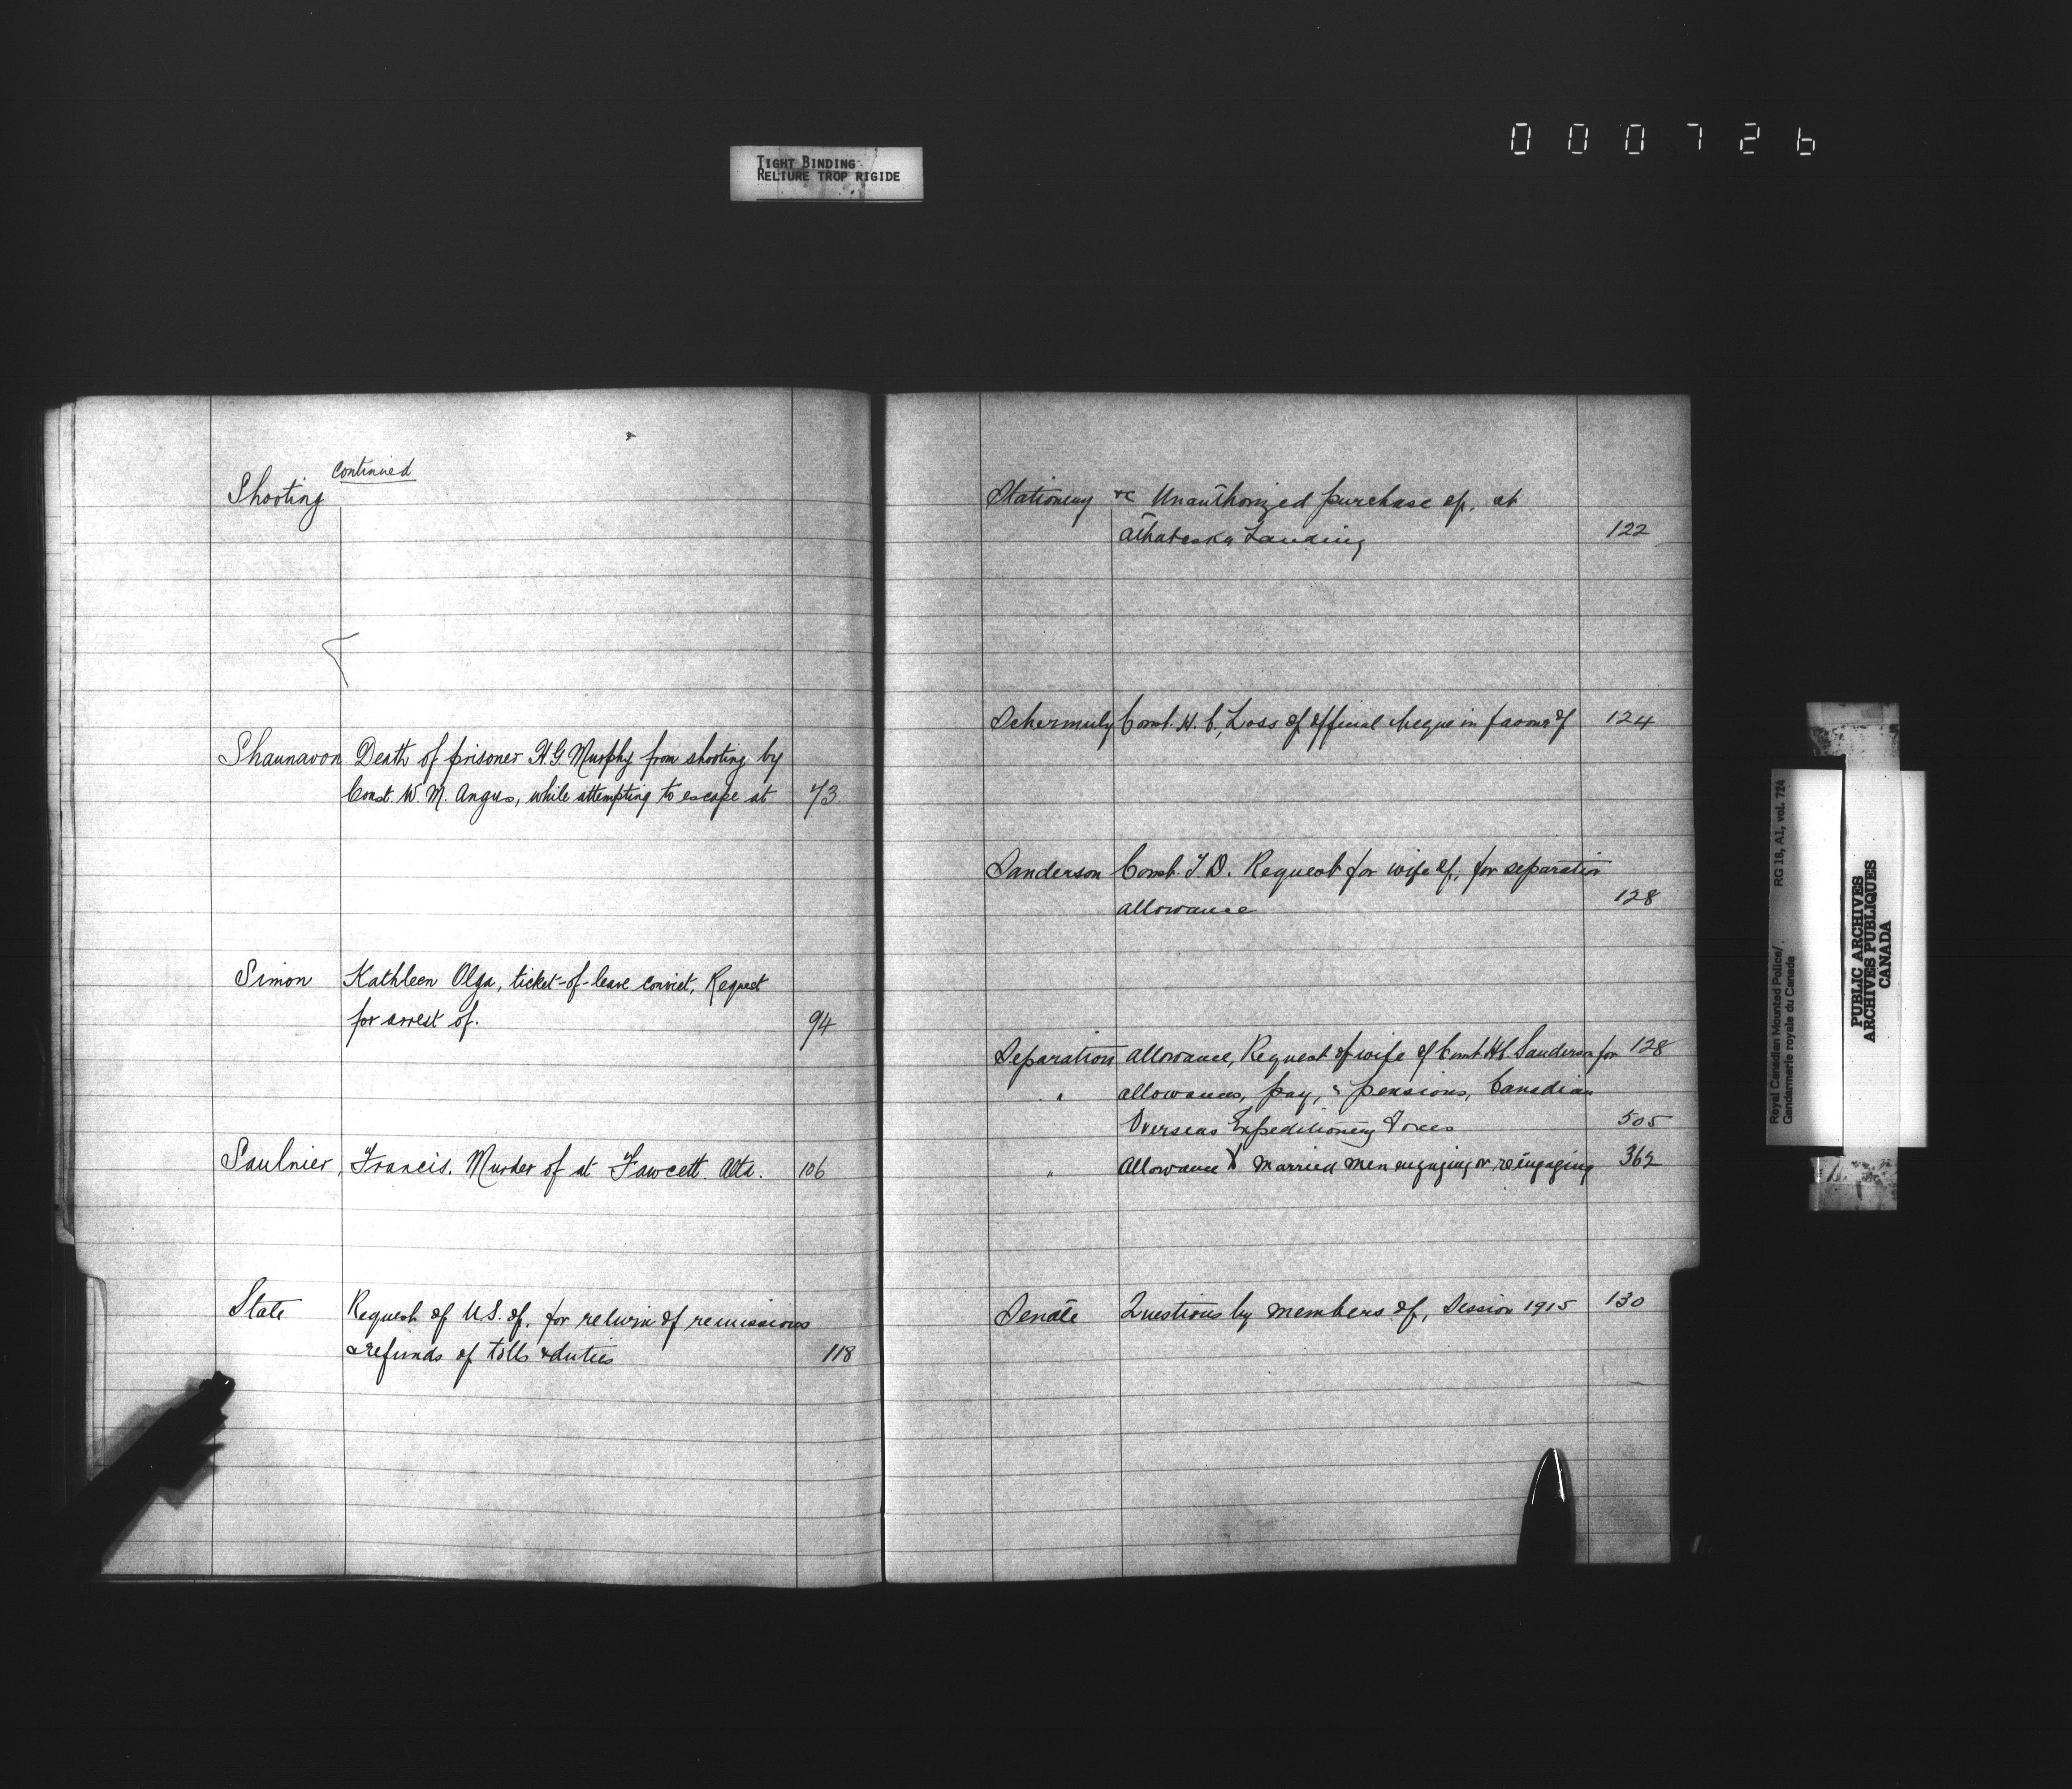 000726
TIGHT BINDING
RELIURE TROP RIGIDE
continued
Shooting
Shaunavon Death of prisoner H.G Murphy from shooting by
Const. W. M. Angus, while attempting to escape at 73
Simon Kathleen Olga, ticket-of-leave convict, Request
for arrest of. 94
Saulnier, Francis. Murder of at Fawcett. Alta. 106
State Request of U.S. of, for return of remissions
& refunds of tolls & duties 118
Stationery &c Unauthorized purchase of, at
Athabaska Landing 122
Schermuly Const. H. C., Loss of official cheque in favour of 124
Sanderson Const. T. D. Request for wife of, for separation
allowance 128
Separation allowance, Request of wife of Const Sanderson for 128
" allowances, pay, & pensions, Canadian
Overseas Expeditionary Forces 505
" Allowance married men engaging or reengaging 362
Senate Questions by members of, Session 1915 130
Royal Canadian Mounted Police/ RG 18, A1, vol. 724
Gendarmerie royale du Canada
PUBLIC ARCHIVES
ARCHIVES PUBLIQUES
CANADA